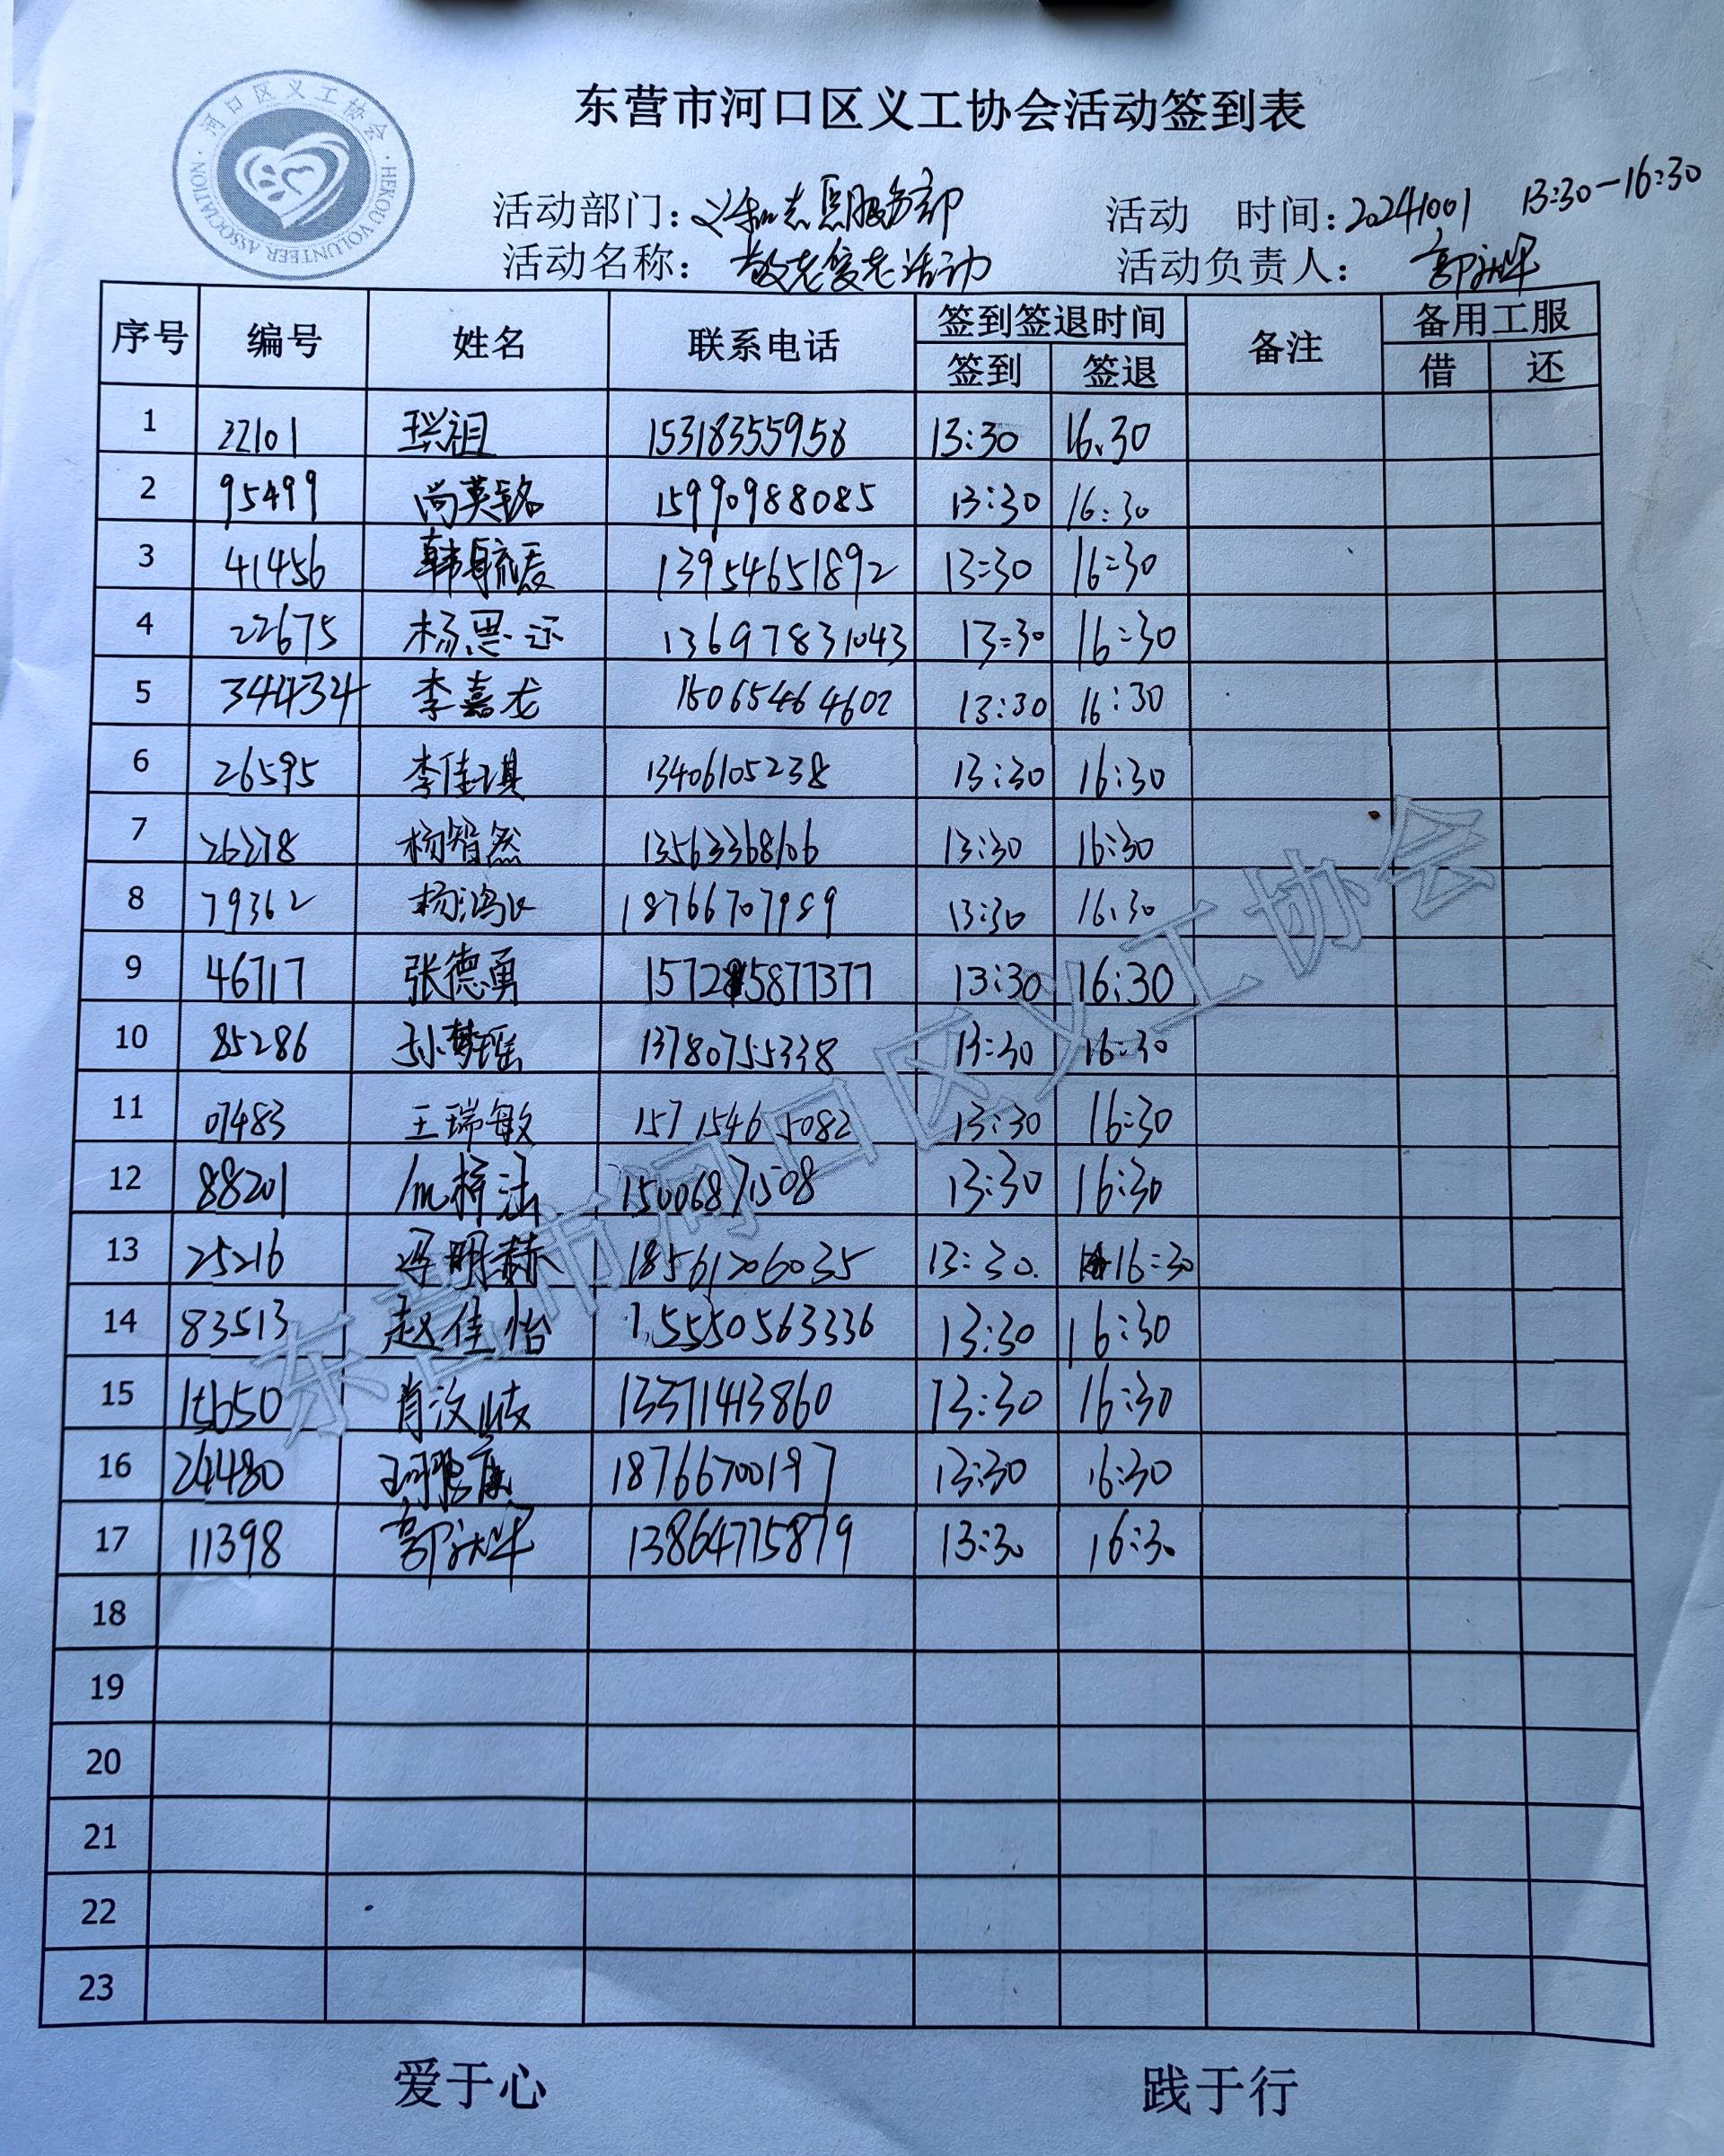 东营市河口区义工协会活动签到表
河口区义工协会
HEKOU VOLUNTEER ASSOCIATION
活动部门：义和志愿服务部 活动 时间：20241001 13:30-16:30
活动名称：敬老爱老活动 活动负责人：
序号 编号 姓名 联系电话 签到签退时间 备注 备用工服
签到 签退 借 还
1 22101 15318355958 13:30 16.30
2 95499 尚英铭 15990988085 13:30 16:30
3 41456 韩毓媛 13954651892 13:30 16:30
4 22675 杨思 13697831043 13:30 16:30
5 34434 李嘉龙 15065464602 13:30 16:30
6 26595 李佳琪 13406105238 13:30 16:30
7 26278 杨智然 13563368106 13:30 16:30
8 79362 杨鸿 18766707989 13:30 16.30
9 46717 张德勇 1572 5877377 13:30 16:30
10 85286 孙梦瑶 13780755338 13:30 16:30
11 07483 王瑞敏 15715465082 13:30 16:30
12 88201 15006871508 13:30 16:30
13 25216 冯明赫 18561206035 13:30. 16:30
14 83513 赵佳怡 15550563336 13:30 16:30
15 肖汶 13371413860 13:30 16:30
16 24480 18766700197 13:30 16:30
17 11398 13864775879 13:30 16:30
18
19
20
21
22
23
东营市河口区义工协会
爱于心 践于行